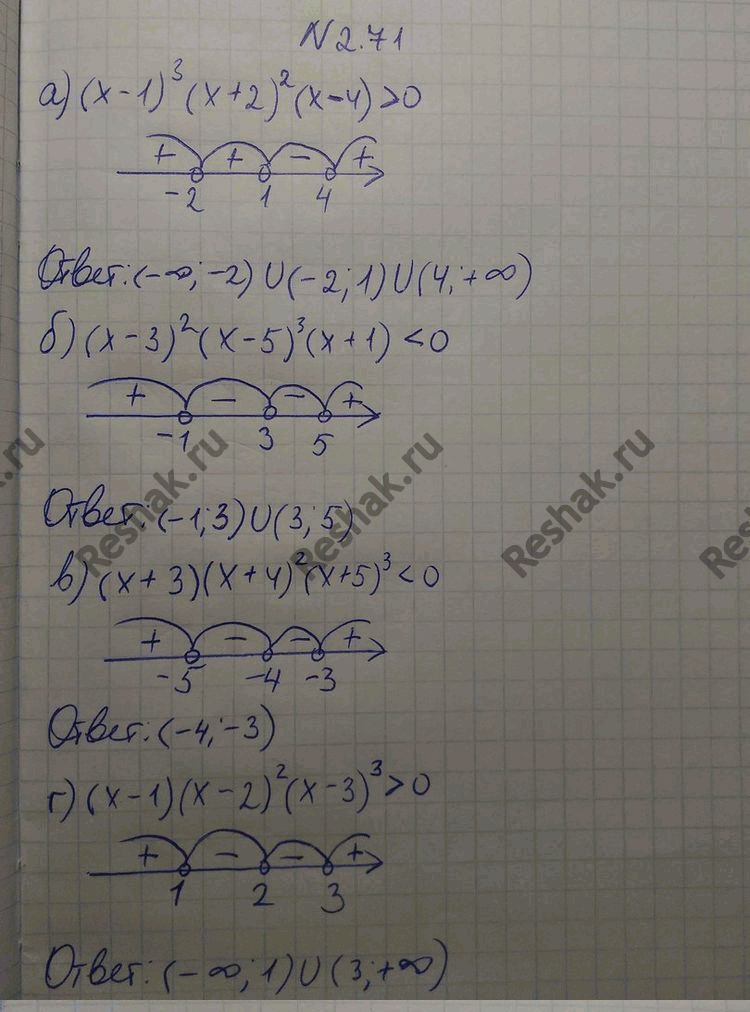 N 2.71
а) (x-1)³(x+2)²(x-4)>0
+ + - +
-2 1 4
Ответ: (-∞; -2) U (-2; 1) U (4; +∞)
б) (x-3)²(x-5)³(x+1) <0
+ - - +
-1 3 5
Ответ: (-1; 3) U (3; 5)
в) (x+3)(x+4)²(x+5)³<0
+ - - +
-5 -4 -3
Ответ: (-4; -3)
г) (x-1)(x-2)²(x-3)³>0
+ - - +
1 2 3
Ответ: (-∞; 1) U (3; +∞)
Reshak.ru
Reshak.ru
Reshak.ru